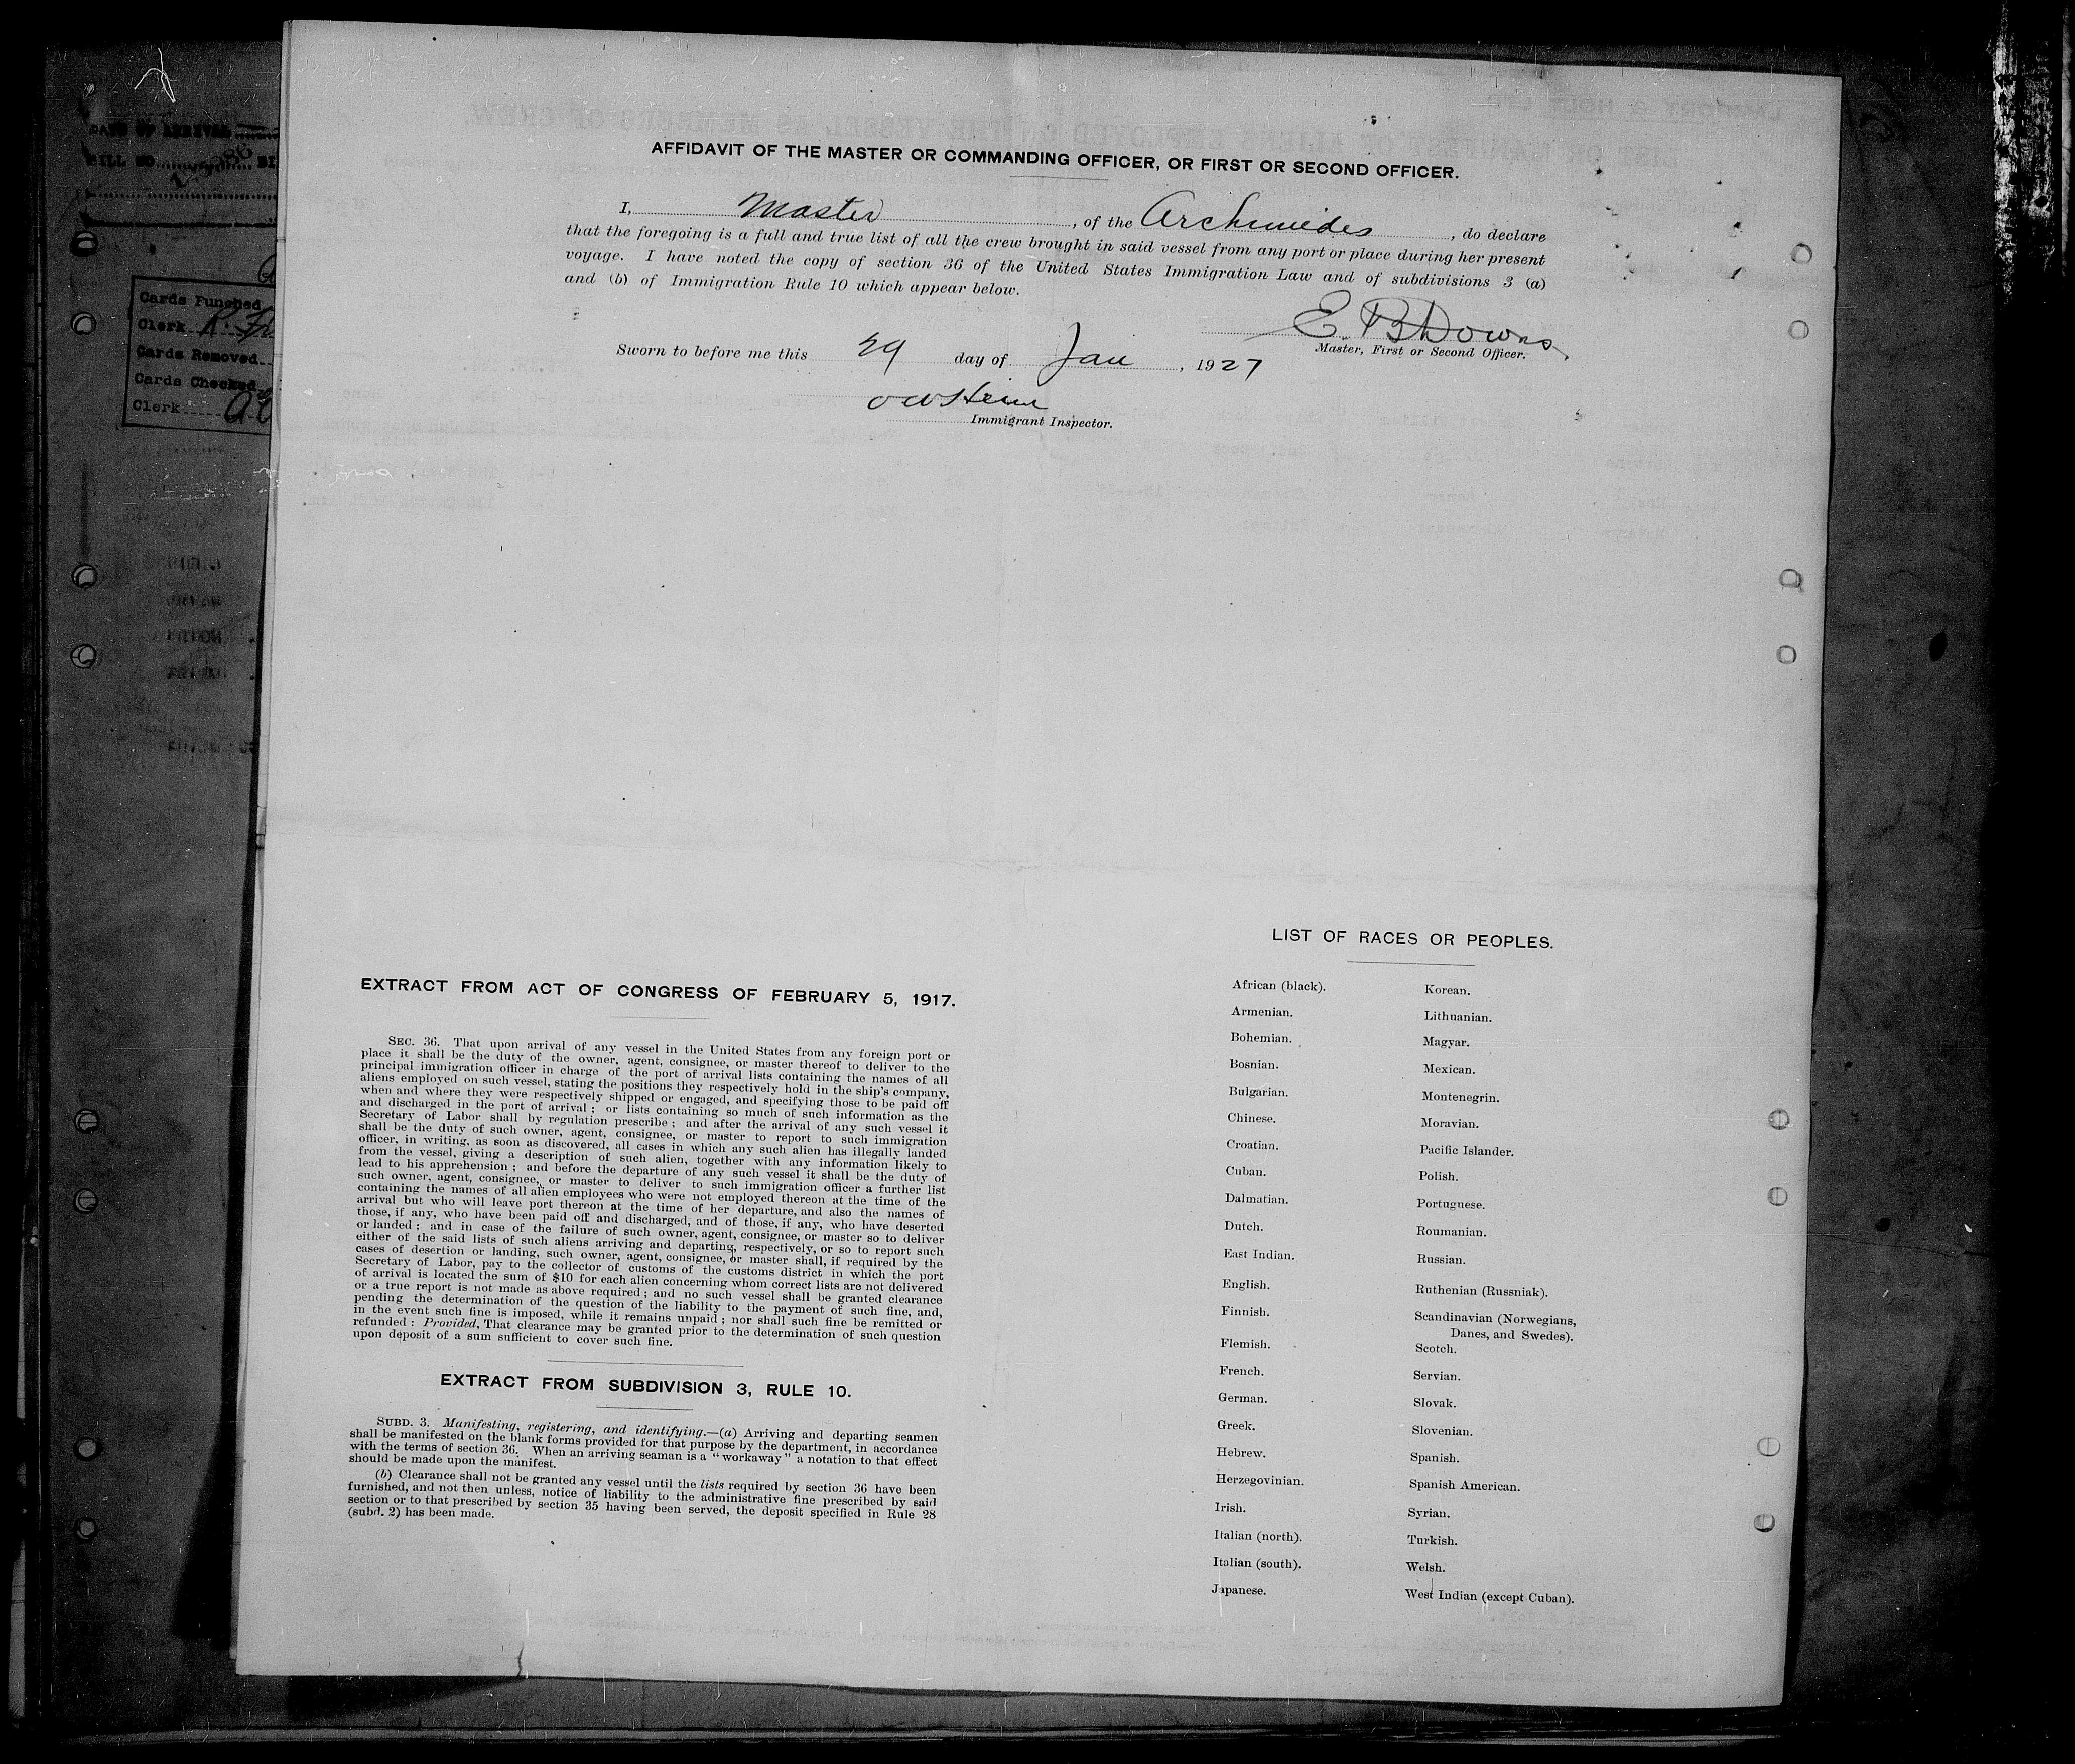 AFFIDAVIT OF THE MASTER OR COMMANDING OFFICER, OR FIRST OR SECOND OFFICER.
I, Master, of the Archimedes, do declare
that the foregoing is a full and true list of all the crew brought in said vessel from any port or place during her present
voyage. I have noted the copy of section 36 of the United States Immigration Law and of subdivisions 3 (a)
and (b) of Immigration Rule 10 which appear below.
E. B. Downs
Master, First or Second Officer.
Sworn to before me this 29 day of Jan, 1927
Immigrant Inspector.
DATE OF ARRIVAL
BILL NO.
Cards Punched
Clerk
Cards Removed
Cards Checked
Clerk
EXTRACT FROM ACT OF CONGRESS OF FEBRUARY 5, 1917.
SEC. 36. That upon arrival of any vessel in the United States from any foreign port or
place it shall be the duty of the owner, agent, consignee, or master thereof to deliver to the
principal immigration officer in charge of the port of arrival lists containing the names of all
aliens employed on such vessel, stating the positions they respectively hold in the ship's company,
when and where they were respectively shipped or engaged, and specifying those to be paid off
and discharged in the port of arrival; or lists containing so much of such information as the
Secretary of Labor shall by regulation prescribe; and after the arrival of any such vessel it
shall be the duty of such owner, agent, consignee, or master to report to such immigration
officer, in writing, as soon as discovered, all cases in which any such alien has illegally landed
from the vessel, giving a description of such alien, together with any information likely to
lead to his apprehension; and before the departure of any such vessel it shall be the duty of
such owner, agent, consignee, or master to deliver to such immigration officer a further list
containing the names of all alien employees who were not employed thereon at the time of the
arrival but who will leave port thereon at the time of her departure, and also the names of
those, if any, who have been paid off and discharged, and of those, if any, who have deserted
or landed; and in case of the failure of such owner, agent, consignee, or master so to deliver
either of the said lists of such aliens arriving and departing, respectively, or so to report such
cases of desertion or landing, such owner, agent, consignee, or master shall, if required by the
Secretary of Labor, pay to the collector of customs of the customs district in which the port
of arrival is located the sum of $10 for each alien concerning whom correct lists are not delivered
or a true report is not made as above required; and no such vessel shall be granted clearance
pending the determination of the question of the liability to the payment of such fine, and,
in the event such fine is imposed, while it remains unpaid; nor shall such fine be remitted or
refunded: Provided, That clearance may be granted prior to the determination of such question
upon deposit of a sum sufficient to cover such fine.
EXTRACT FROM SUBDIVISION 3, RULE 10.
SUBD. 3. Manifesting, registering, and identifying.—(a) Arriving and departing seamen
shall be manifested on the blank forms provided for that purpose by the department, in accordance
with the terms of section 36. When an arriving seaman is a "workaway" a notation to that effect
should be made upon the manifest.
(b) Clearance shall not be granted any vessel until the lists required by section 36 have been
furnished, and not then unless, notice of liability to the administrative fine prescribed by said
section or to that prescribed by section 35 having been served, the deposit specified in Rule 28
(subd. 2) has been made.
LIST OF RACES OR PEOPLES.
African (black).
Armenian.
Bohemian.
Bosnian.
Bulgarian.
Chinese.
Croatian.
Cuban.
Dalmatian.
Dutch.
East Indian.
English.
Finnish.
Flemish.
French.
German.
Greek.
Hebrew.
Herzegovinian.
Irish.
Italian (north).
Italian (south).
Japanese.
Korean.
Lithuanian.
Magyar.
Mexican.
Montenegrin.
Moravian.
Pacific Islander.
Polish.
Portuguese.
Roumanian.
Russian.
Ruthenian (Russniak).
Scandinavian (Norwegians,
Danes, and Swedes).
Scotch.
Servian.
Slovak.
Slovenian.
Spanish.
Spanish American.
Syrian.
Turkish.
Welsh.
West Indian (except Cuban).